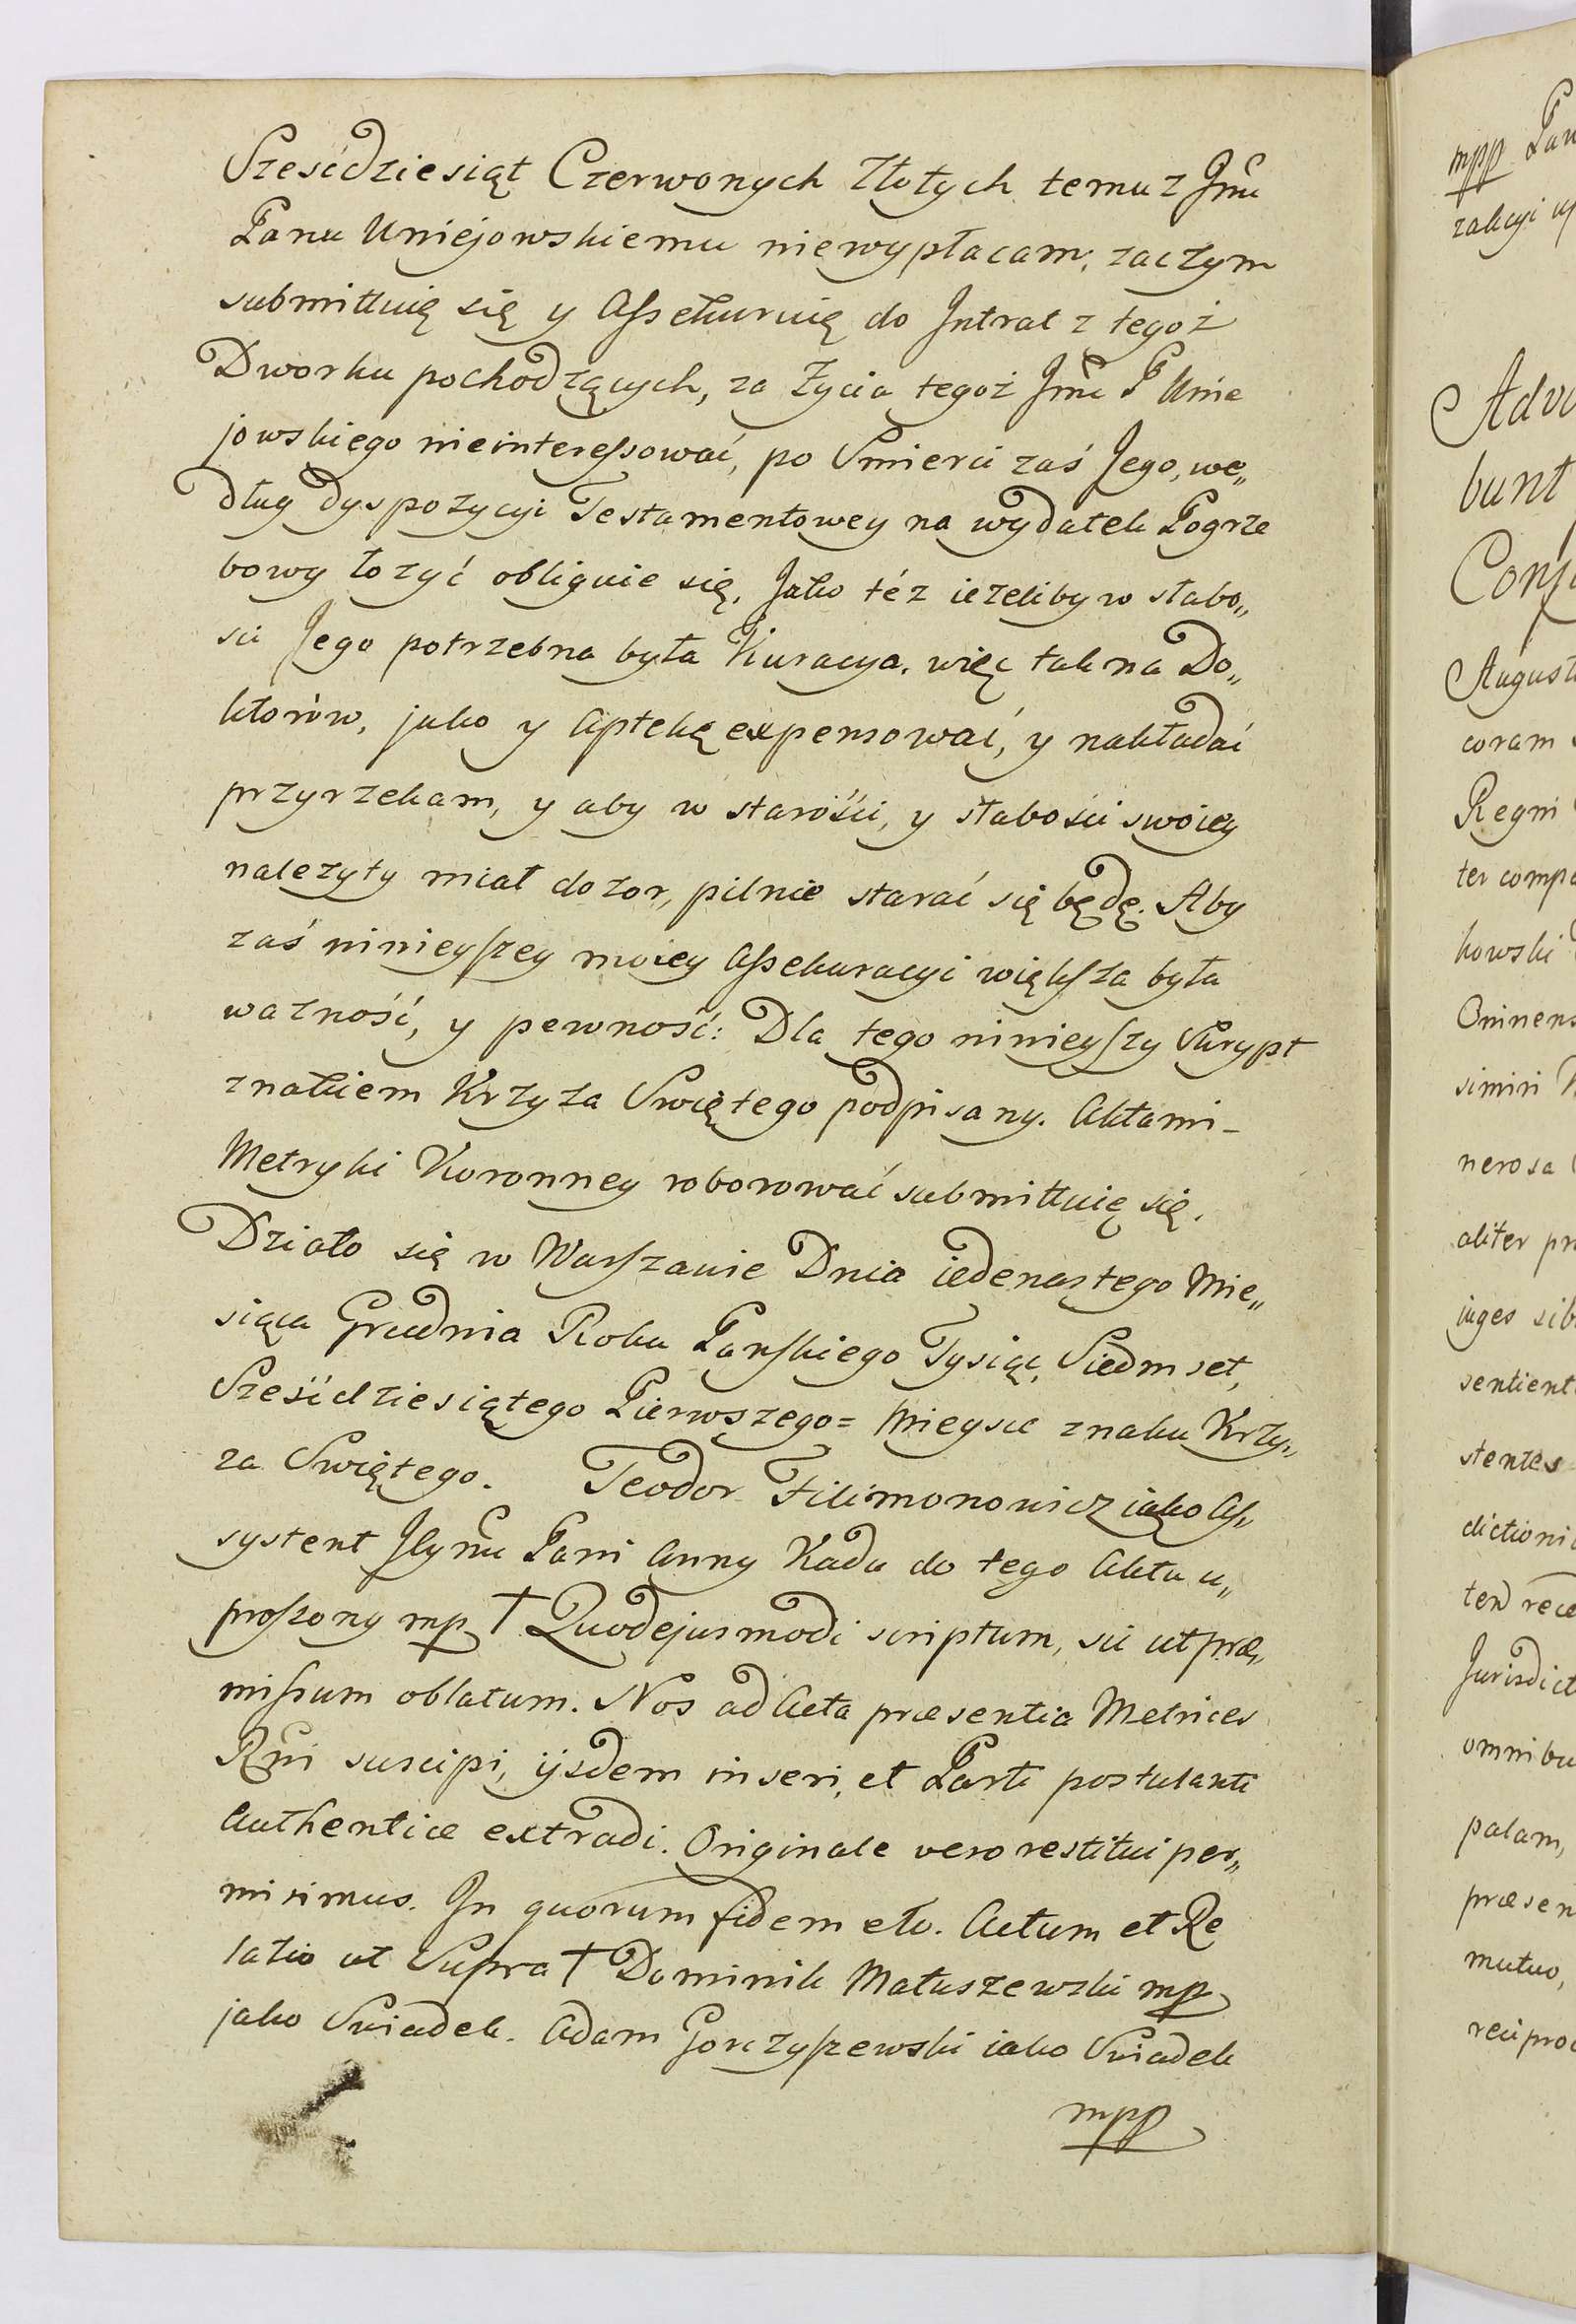 Sześćdziesiąt Czerwonych Złotych temuz Jmci
Panu Uniejowskiemu niewypłacam, zaczym
submittuię się y Assekuruię do Jntrat z tegoż
Dworku pochodzących, za życia tegoż Jmci P Unie
jowskiego nieinteressować, po Smierci zaś Jego, we„
dług dyspozycyi Testamentowey na wydatek Pogrze
bowy łozyć obliguie się, Jako téz iezeliby w słabo„
sci Jego potrzebna była Kuracya, więc tak na Do„
ktorów, jako y Aptekę expensować, y nakładać
przyrzekam, y aby w starości, y słabości swoiey
nalezyty miał dozor, pilnie starać się będę. Aby
zaś ninieyszey moiey Assekuracyi większa była
wazność, y pewność: Dla tego ninieyszy Skrypt
znakiem Krzyza Swiętego podpisany. Aktami
Metryki Koronney roborować submittuię się.
Działo się w Warszawie Dnia iedenastego Mie„
siąca Grudnia Roku Pańskiego Tysiąc, Siedmset,
Sześćdziesiątego Pierwszego= Mieysce znaku Krzy„
za Swiętego. Teodor Filimonowicz iako As„
systent JEymci Pani Anny Kadu do tego Aktu u„
proszony mp † Quodejusmodi scriptum, sic ut præ„
missum oblatum. Nos ad Acta præsentia Metrices
Rñi suscipi, ijsdem inseri, et Parti postulanti
Authentice extradi. Originale vero restitui per„
misimus. Jn quorum fidem etc. Actum et Re
latio ut Supra † Dominik Matuszewski mp
jako Swiadek. Adam Gorczyszewski iako Swiadek
mpp
mpp Pan
Advo
bunt
August
coram
Regni
ter compa
kowski
simiri
nerosa
aliter pr
iuges sib
sentient
stentes
dictioni
Jurisdict
omnibu
palam,
præsen
mutuo,
reciproc